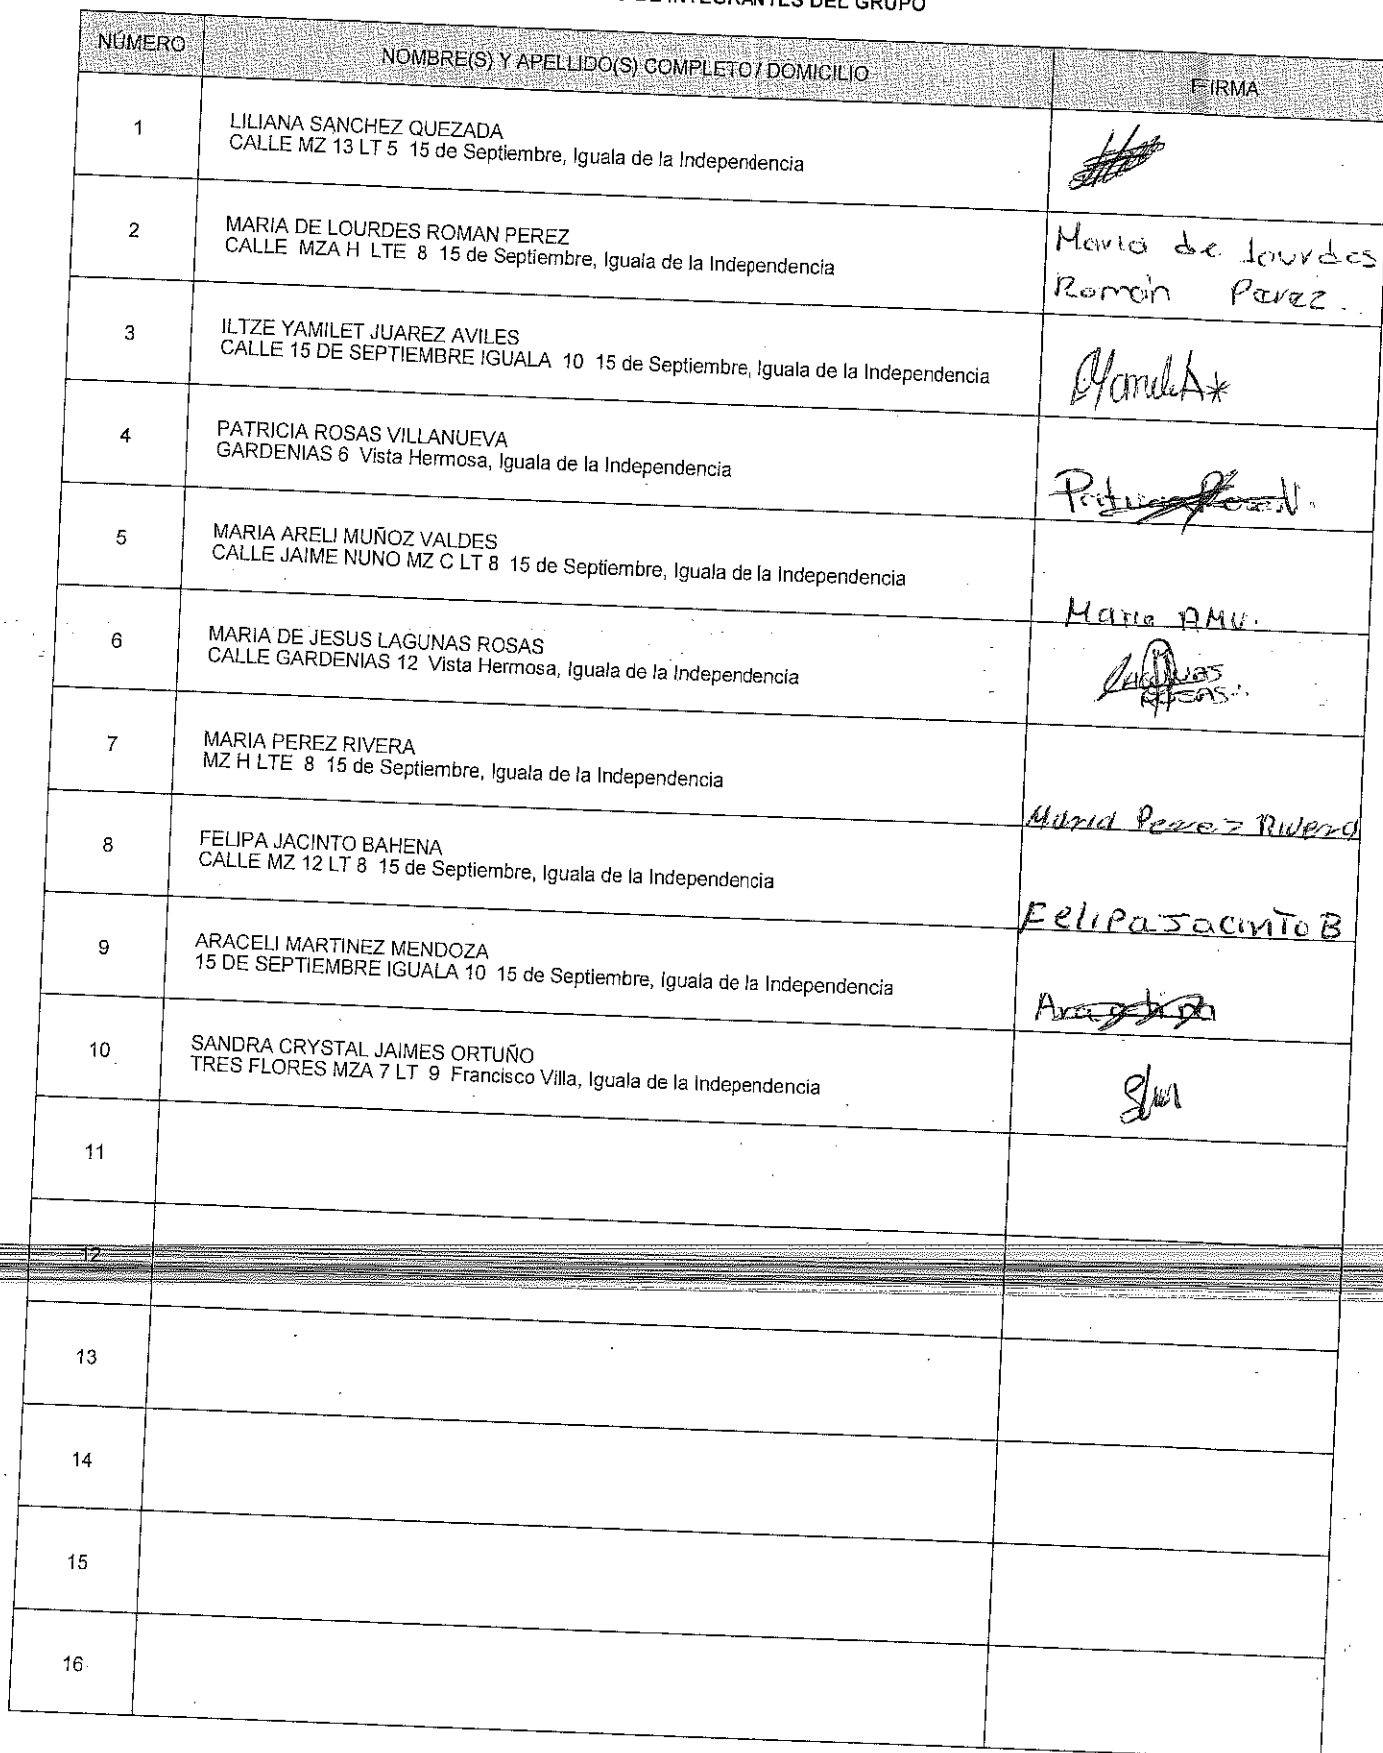 DE INTEGRANTES DEL GRUPO
NÚMERO NOMBRE(S) Y APELLIDO(S) COMPLETO / DOMICILIO FIRMA
1 LILIANA SANCHEZ QUEZADA
CALLE MZ 13 LT 5 15 de Septiembre, Iguala de la Independencia
2 MARIA DE LOURDES ROMAN PEREZ
CALLE MZA H LTE 8 15 de Septiembre, Iguala de la Independencia
Maria de lourdes
Román Perez.
3 ILTZE YAMILET JUAREZ AVILES
CALLE 15 DE SEPTIEMBRE IGUALA 10 15 de Septiembre, Iguala de la Independencia
4 PATRICIA ROSAS VILLANUEVA
GARDENIAS 6 Vista Hermosa, Iguala de la Independencia
5 MARIA ARELI MUÑOZ VALDES
CALLE JAIME NUNO MZ C LT 8 15 de Septiembre, Iguala de la Independencia
Maria AMV.
6 MARIA DE JESUS LAGUNAS ROSAS
CALLE GARDENIAS 12 Vista Hermosa, Iguala de la Independencia
LAGUNAS
ROSAS
7 MARIA PEREZ RIVERA
MZ H LTE 8 15 de Septiembre, Iguala de la Independencia
Maria Perez Rivera
8 FELIPA JACINTO BAHENA
CALLE MZ 12 LT 8 15 de Septiembre, Iguala de la Independencia
Felipa Jacinto B
9 ARACELI MARTINEZ MENDOZA
15 DE SEPTIEMBRE IGUALA 10 15 de Septiembre, Iguala de la Independencia
10 SANDRA CRYSTAL JAIMES ORTUÑO
TRES FLORES MZA 7 LT 9 Francisco Villa, Iguala de la Independencia
11
12
13
14
15
16